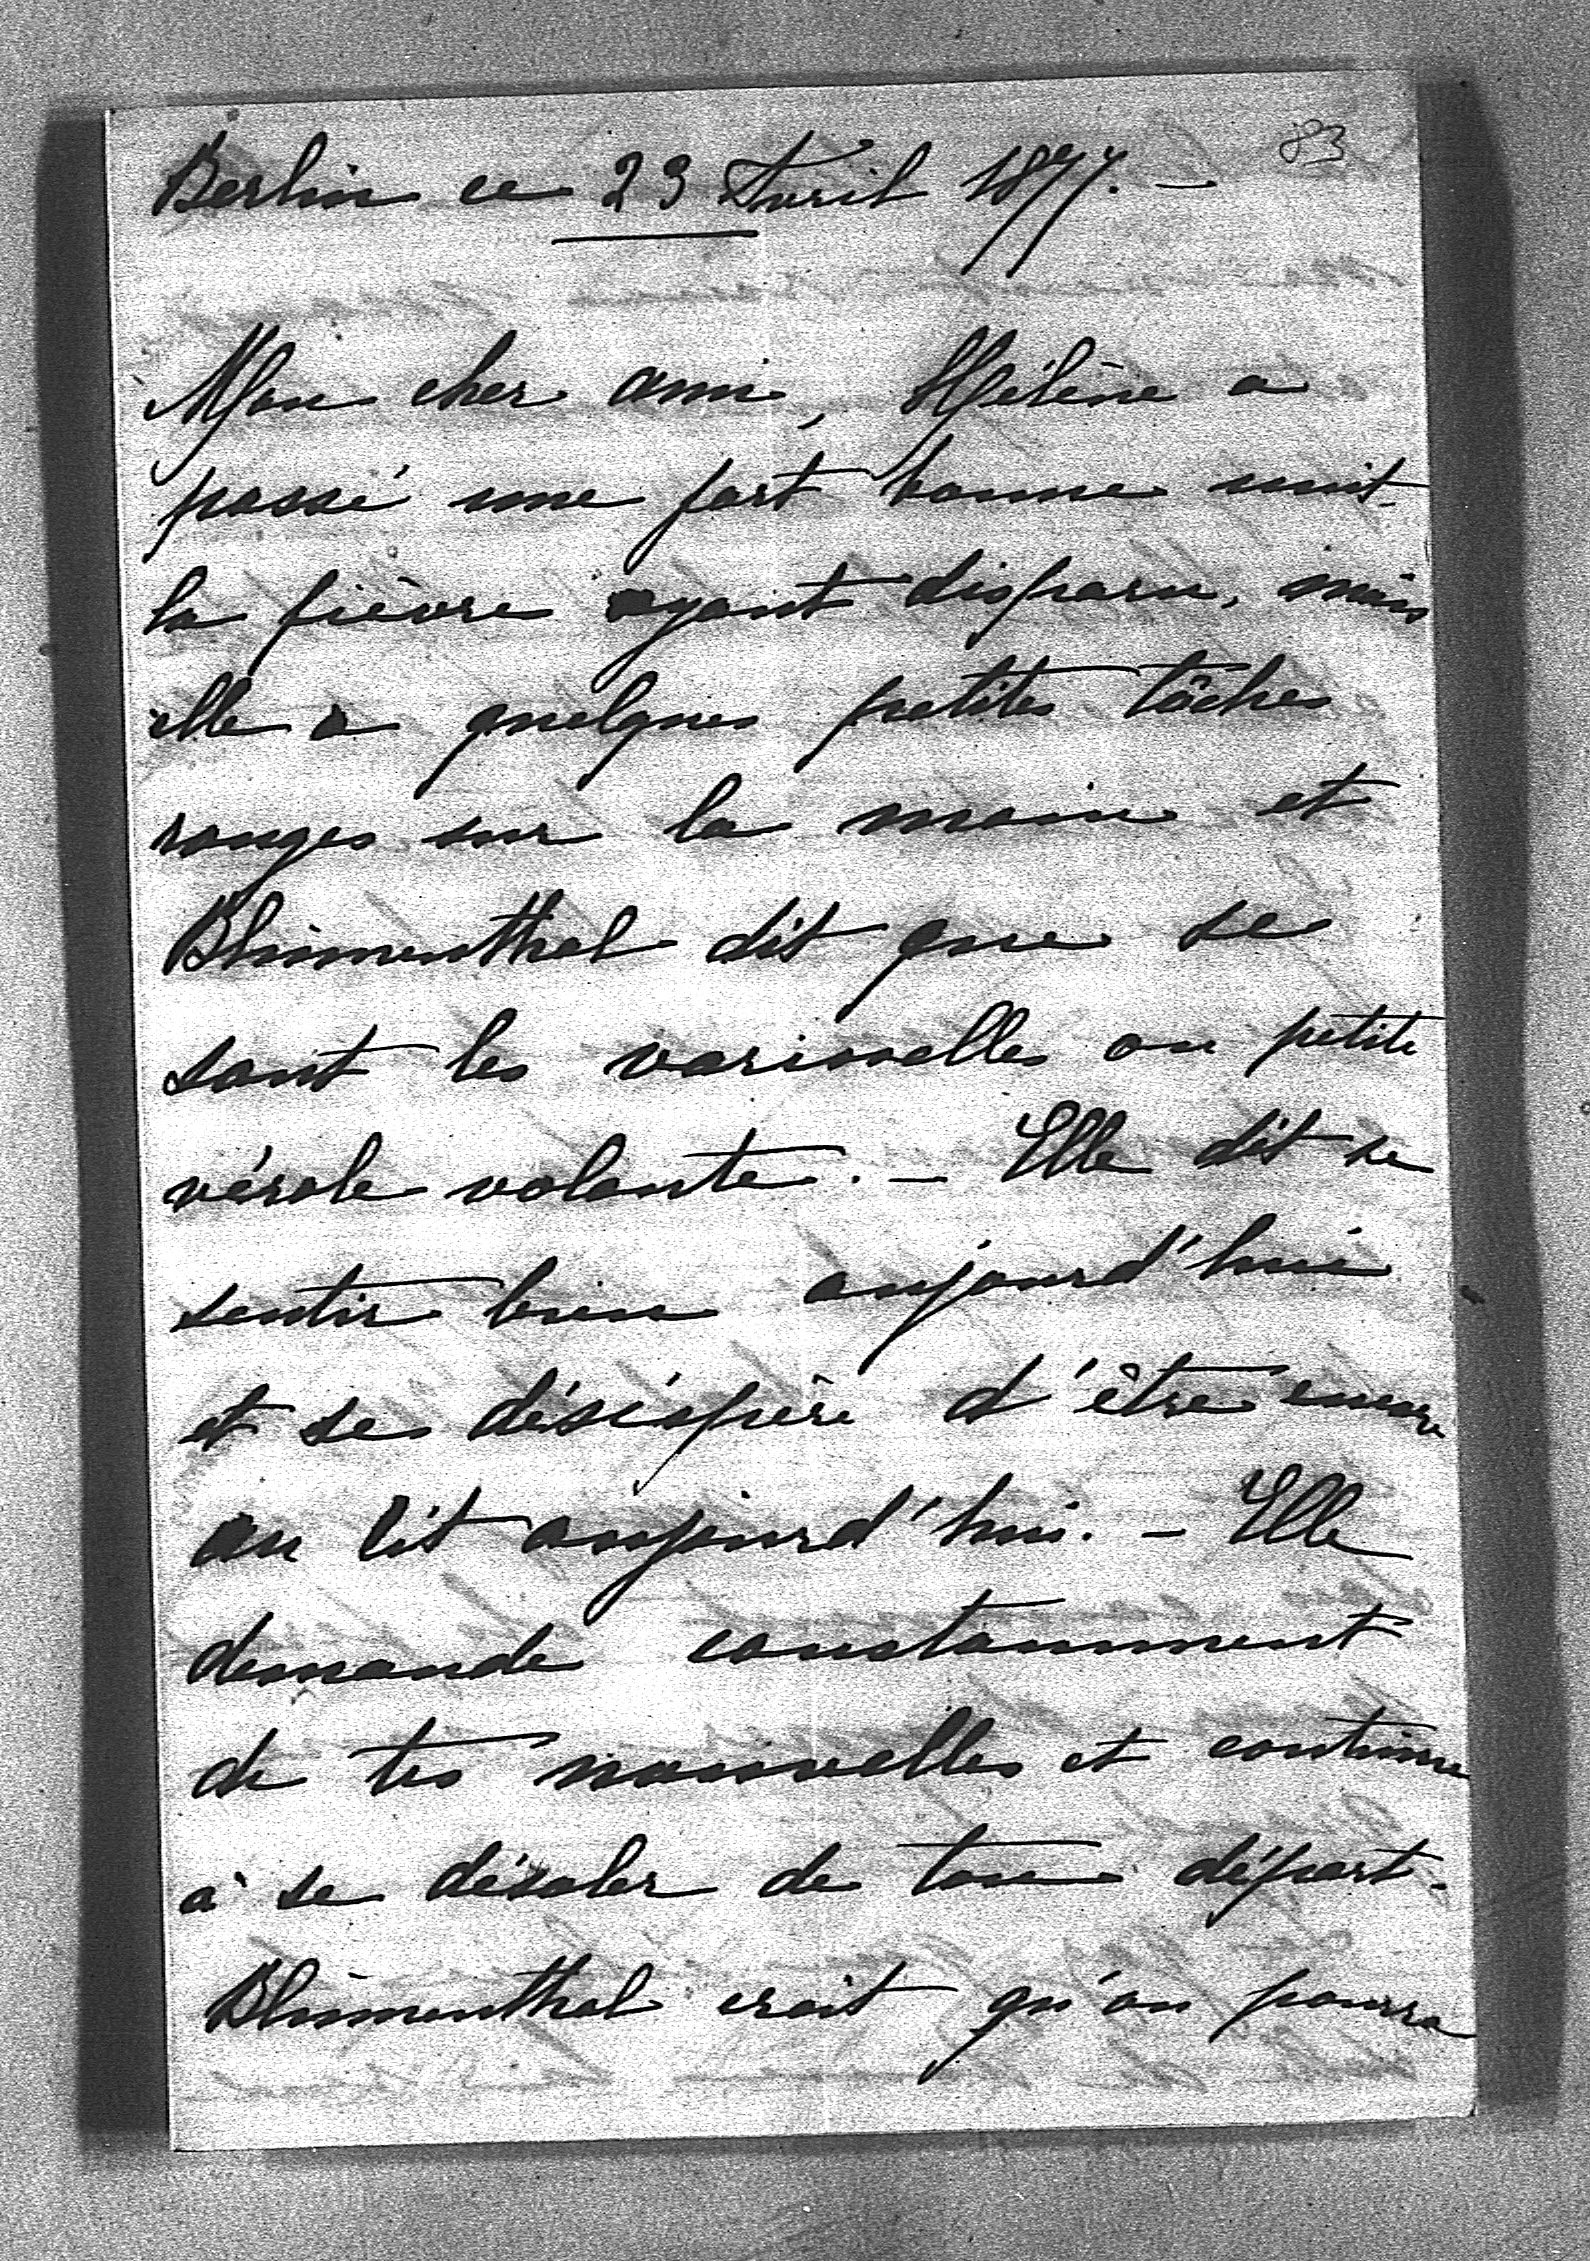 83
Berlin ce 23 Avril 1877. -
Mon cher ami, Hélène a
passé une fort bonne nuit
la fièvre ayant disparu, mais
elle a quelques petites tâches
rouges sur la main et
Blumenthal dit que se
sont les varioelles ou petite
vérole volante. - Elle dit se
sentir bien aujourd'hui
et se déséspère d'être encore
au lit aujourd'hui. - Elle
demande constamment
de tes nouvelles et continue
à se désoler de ton départ.
Blumenthal croit qu'on pourra